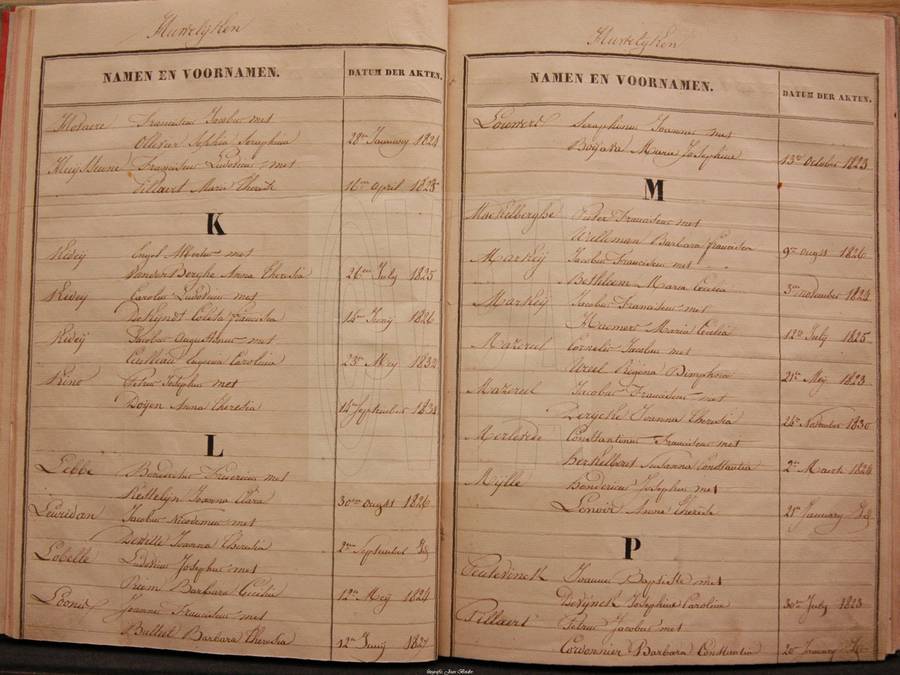 Huwelyken
NAMEN EN VOORNAMEN. DATUM DER AKTEN.
Franciscus Jacobus met
Ollivier Sophia Seraphina 28en January 1824
Franciscus Ludovicus met
Pillaert Maria Theresia 16en April 1828
K
Kedeÿ Engel Albertus met
Vanden Berghe Anna Theresia 26en July 1825
Kedey Carolus Ludovicus met
Coleta Francisca 14en Junÿ 1826
Kedeÿ Jacobus Augustinus met
Eugenia Carolina 23en Meÿ 1832
Kino Petrus Josephus met
Doÿen Anna Theresia 14en September
L
Lebbe Benedictus Fredericus met
Kettelyn Joanna Clara 30en Augst 1826
Leuridan Jacobus Nicodemus met
Dewille Joanna Theresia 2en September
Lobelle Ludovicus Josephus met
Priem Barbara Cecilia 12en Meÿ 1824
Joannes Franciscus met
Bulteel Barbara Theresia 12en Junÿ 1827
Huwelyken
NAMEN EN VOORNAMEN. DATUM DER AKTEN.
Seraphinus Joannes met
Maria Josephina 13en October 1823
M
Mackelberghe Pieter Franciscus met
Willeman Barbara Francisca 9en Augst 1826
Markeÿ Jacobus Franciscus met
Bethleem Maria Cecilia 3en November 1824
Markeÿ Jacobus Franciscus met
Maria Cecilia 12en July 1825
Mazereel Cornelis Jacobus met
Regina Dimphna 21en Meÿ 1823
Mazereel Jacobus Franciscus met
Derycke Joanna Theresia 24en November 1830
Merlevede Constantinus Franciscus met
Herkelbout Susanna Constantia 2en Maert 1824
Mylle Bendericus Josephus met
Lenoir Anna Theresia 21en January
P
Joannes Baptiste met
Devÿnck Josephina Carolina 30en July 1823
Pillaert Petrus Jacobus met
Cordonnier Barbara Constantia 20en January